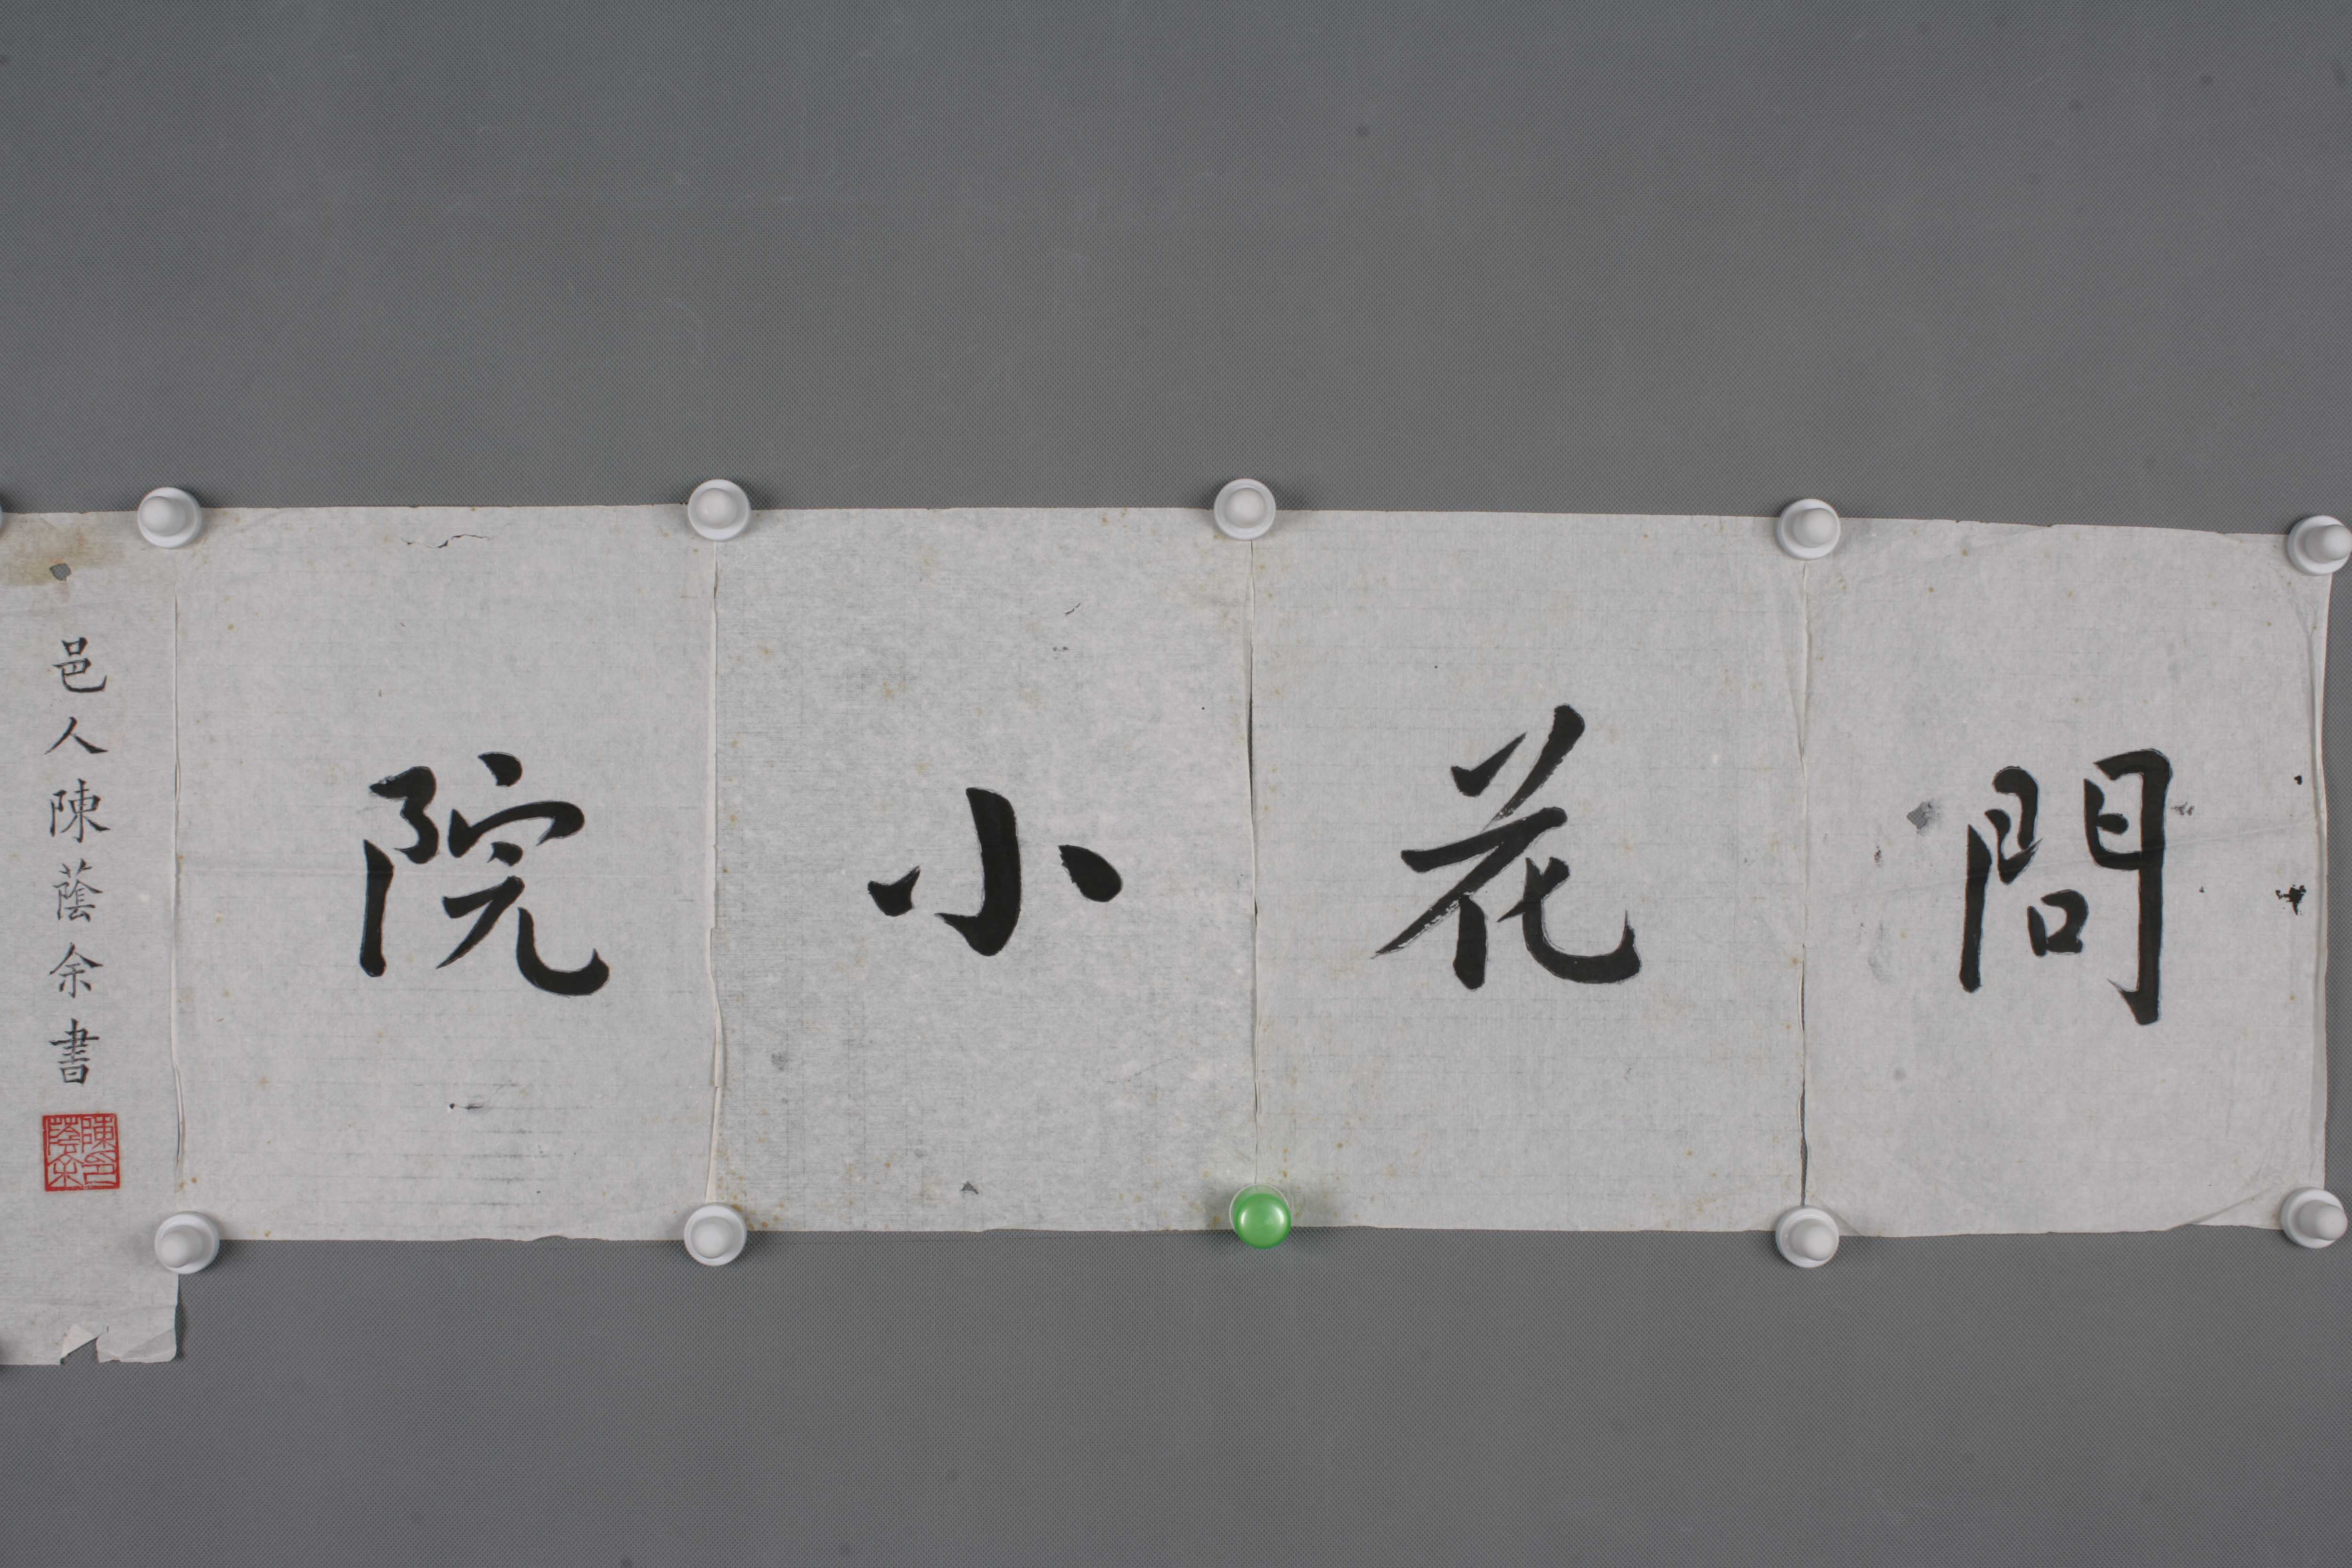 問花小院
邑人陳蔭余書
陳印
蔭余